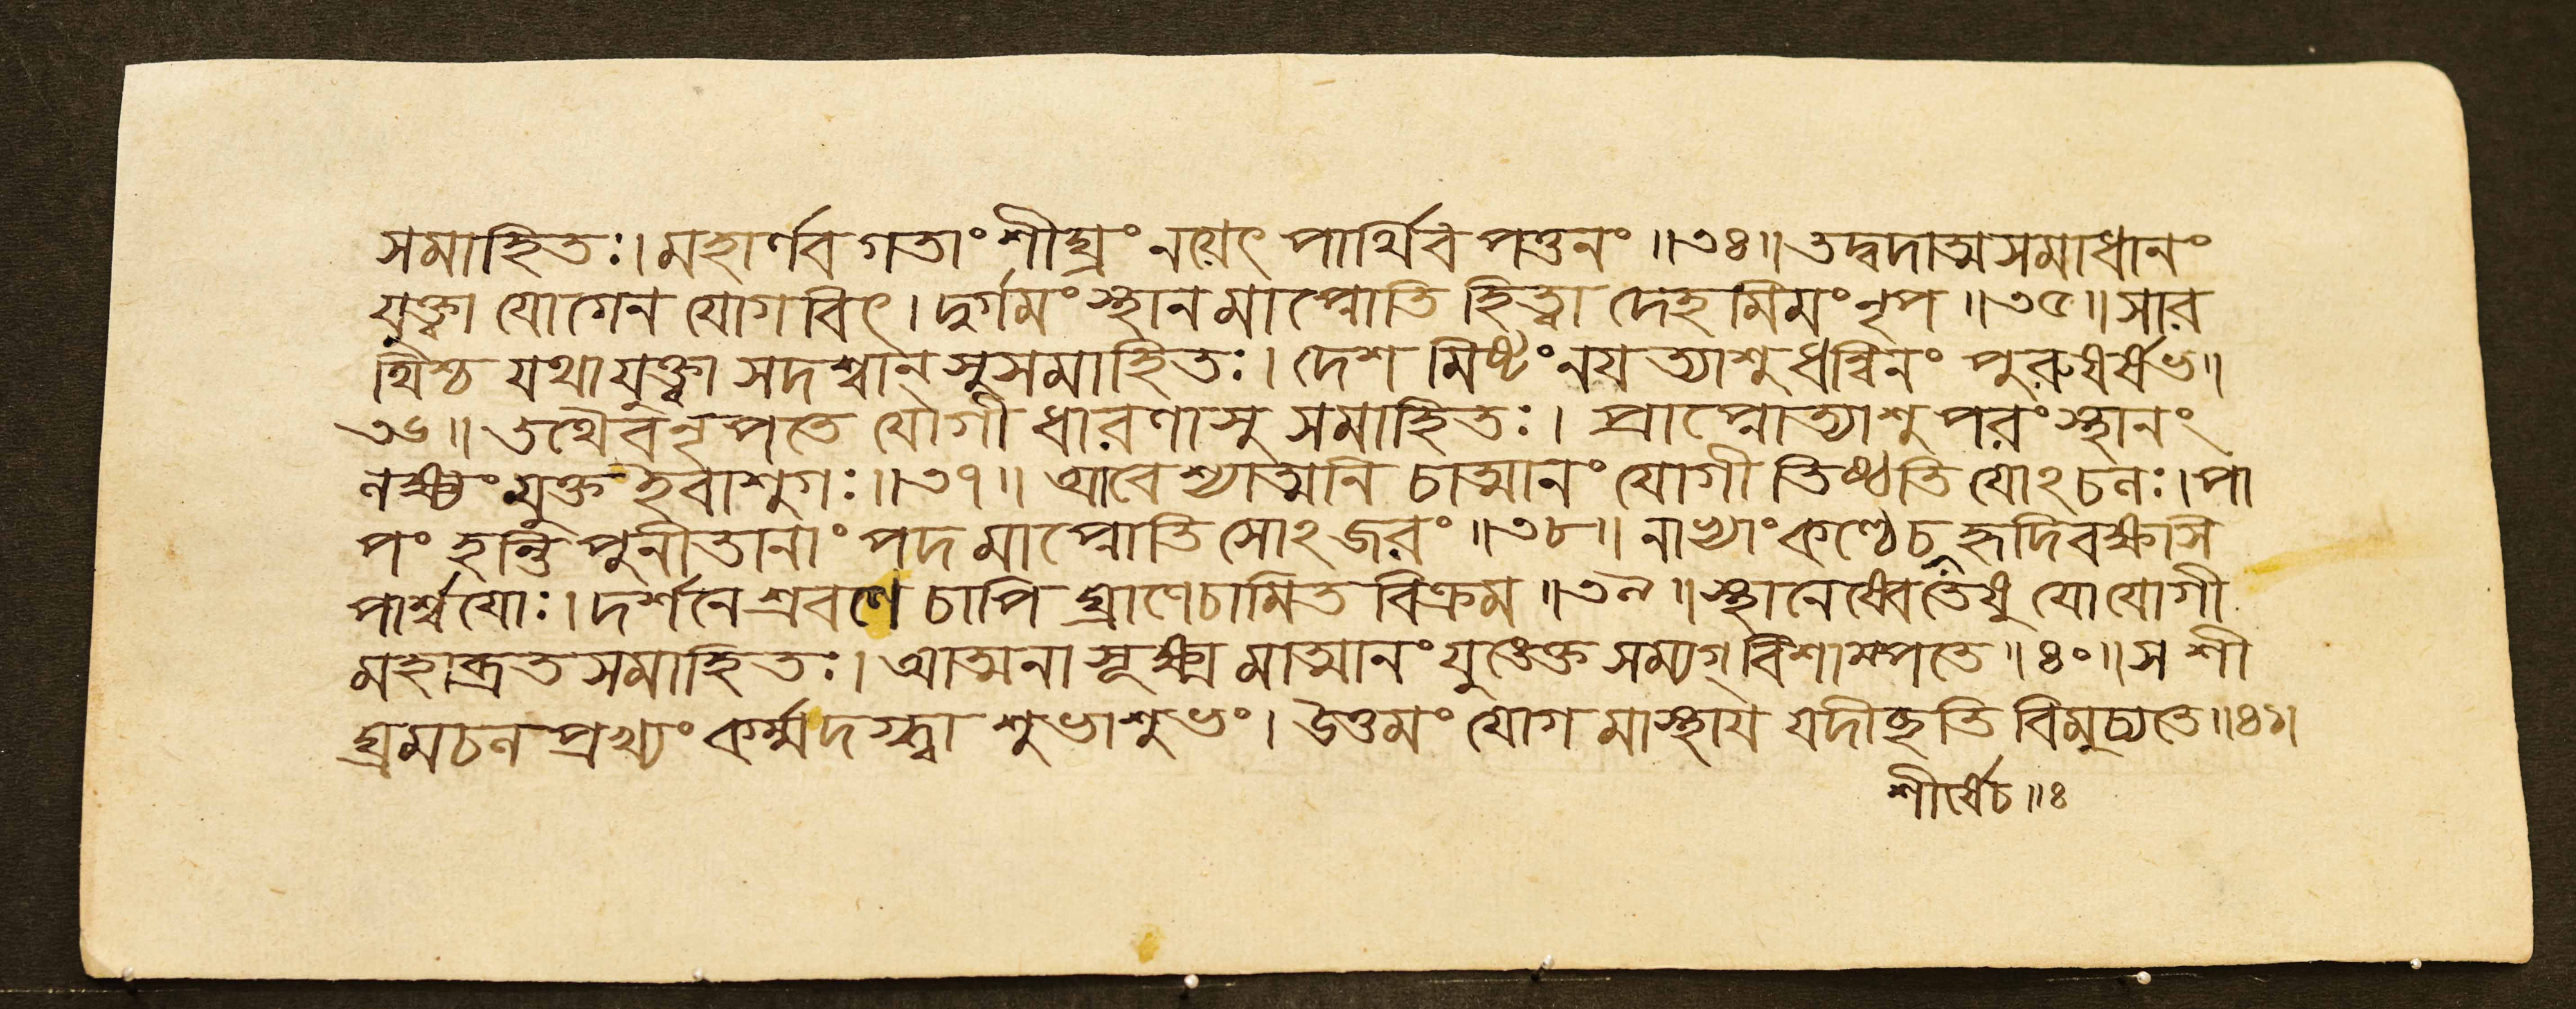 সমাহিতঃ।মহার্ণব গতাং শীঘ্রং নয়েৎ পার্থিব পত্তনং ॥৩৪॥ তদ্বদাত্মসমাধানং
যুক্ত্বা যোগেন যোগবিৎ। দুর্গমং স্থানমাপ্নোতি হিত্বা দেহমিমং নৃপ ॥৩৫॥ সার
থিশ্চ যথা যুক্ত্বা সদশ্বান্ সুসমাহিতঃ। দেশমিষ্টং নয়ত্যাশু ধন্বিনং পুরুষর্ষভ॥
৩৬॥ তথৈব নৃপতে যোগী ধারণাসু সমাহিতঃ। প্রাপ্নোত্যাশু পরং স্থানং
লক্ষ্যং মুক্ত ইবাশুগঃ॥৩৭॥ আবেশ্যাত্মনি চাত্মানং যোগী তিষ্ঠতি যোঽচলঃ।পা
পং হন্তি পুনীতানাং পদমাপ্নোতি সোঽজরং ॥৩৮॥ নাভ্যাং কণ্ঠে চ হৃদি বক্ষসি
পার্শ্বয়োঃ। দর্শনে শ্রবণে চাপি ঘ্রাণে চামিত বিক্রম ॥৩৯॥ স্থানেষ্বেতেষু যো যোগী
মহাব্রত সমাহিতঃ। আত্মনা সূক্ষ্মমাত্মানং যুঙ্ক্তে সম্যগ্ বিশাম্পতে ॥৪০॥ স শী
ঘ্রমচল প্রখ্যং কর্ম্ম দগ্ধ্বা শুভাশুভং। উত্তমং যোগমাস্থায় যদীচ্ছতি বিমুচ্যতে॥৪১।
শীর্ষে চ॥ঃ